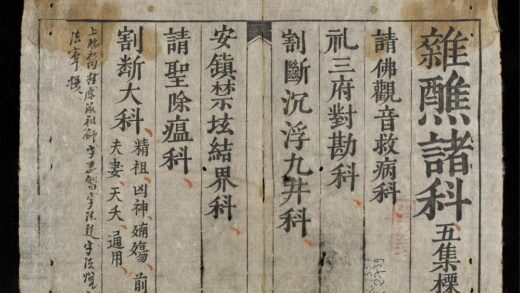 雜醮諸科 五集標
請佛觀音救病科
礼三府對勘科
割斷沉浮九井科
安鎮禁坛結界科
請聖除瘟科
割断大科
精祖凶神婻殤前
夫妻天夭通用
法事撰